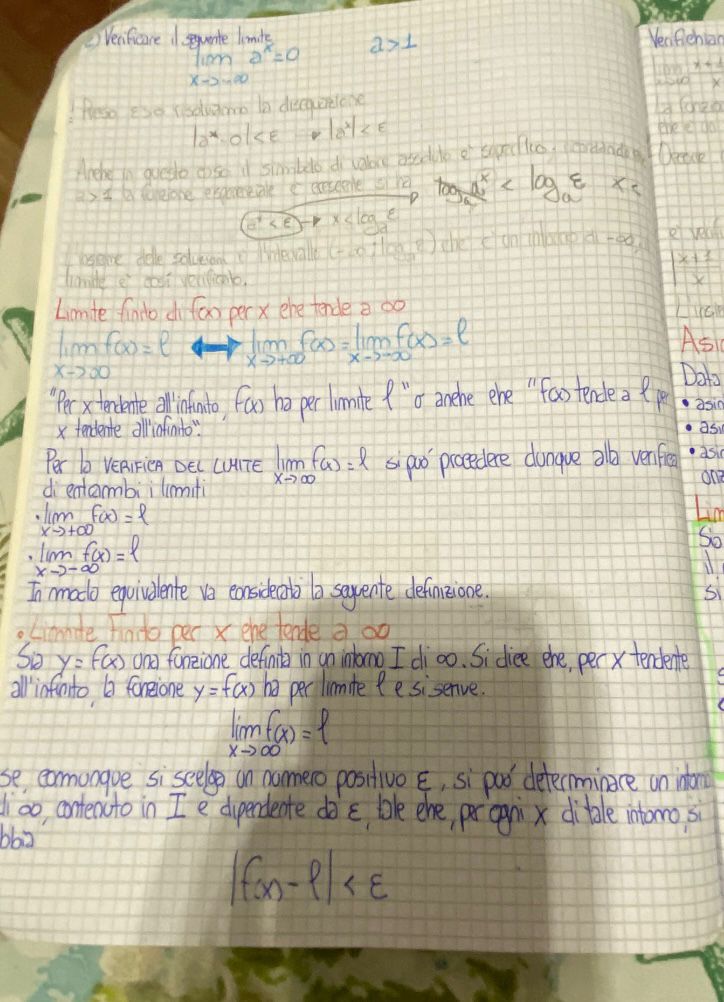 c) Verificare il seguente limite
lim aˣ = 0 a > 1
x→-∞
Preso ε>0 risolviamo la disequazione
|aˣ - 0| < ε → |aˣ| < ε
Anche in questo caso il simbolo di valore assoluto e' superfluo.
a>1 la funzione esponenziale e' crescente si ha log_a aˣ < log_a ε x <
aˣ < ε → x < log_a ε
L'insieme delle soluzioni e' l'intervallo (-∞; log_a ε) che e' un intorno di -∞,
limite e' così verificato.
Limite finito di f(x) per x che tende a ∞
lim f(x) = l ↔ lim f(x) = lim f(x) = l
x→∞ x→+∞ x→-∞
"Per x tendente all'infinito, f(x) ha per limite l" o anche che "f(x) tende a l per
x tendente all'infinito".
Per la VERIFICA DEL LIMITE lim f(x) = l si puo' procedere dunque alla verifica
x→∞
di entrambi i limiti
• lim f(x) = l
x→+∞
• lim f(x) = l
x→-∞
In modo equivalente va considerata la seguente definizione.
• Limite Finito per x che tende a ∞
Sia y = f(x) una funzione definita in un intorno I di ∞. Si dice che, per x tendente
all'infinito, la funzione y = f(x) ha per limite l e si scrive.
lim f(x) = l
x→∞
se, comunque si scelga un numero positivo ε, si puo' determinare un intorno
di ∞, contenuto in I e dipendente da ε, tale che, per ogni x di tale intorno, si
bbia
|f(x) - l| < ε
Verifichiam
x+1
x
La funzio
che e' un
Ovvero
e' verifi
|x+1
x
Asi
Data
• asin
• asi
• asi
oriz
Lim
Sia
il
si